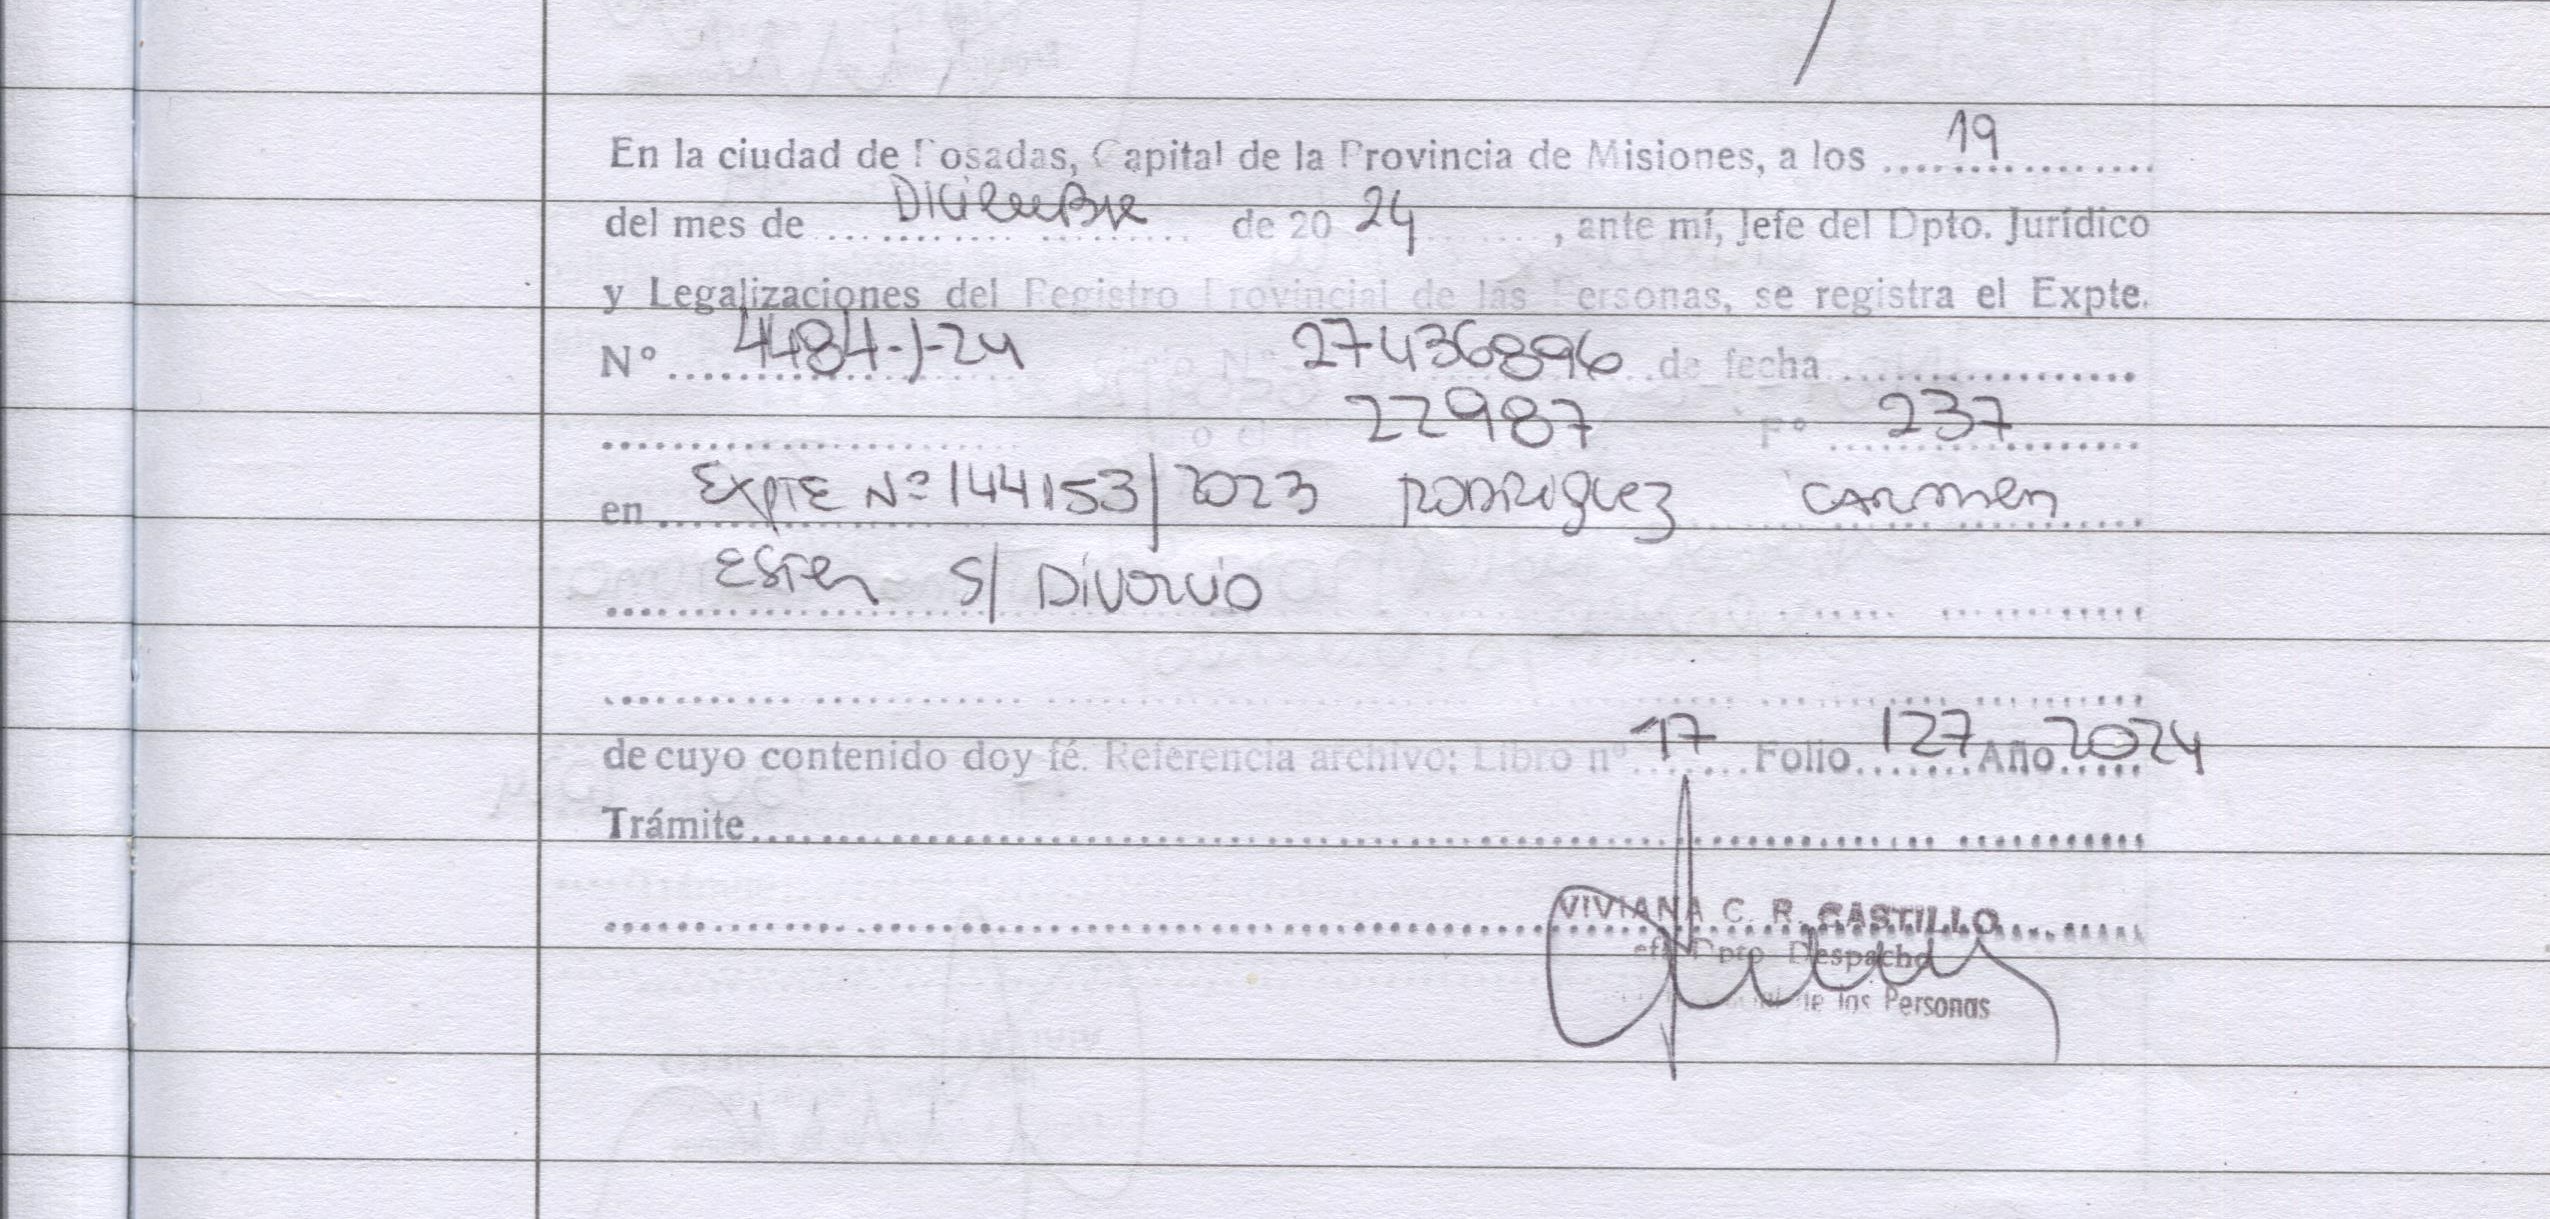 En la ciudad de Posadas, Capital de la Provincia de Misiones, a los 19
del mes de Diciembre de 20 24, ante mí, Jefe del Dpto. Jurídico
y Legalizaciones del Registro Provincial de las Personas, se registra el Expte.
Nº 4484-J-24 27436896 de fecha
22987 Fº 237
en EXPTE Nº 144153/2023 RODRIGUEZ CARMEN
ESTER S/ DIVORCIO
de cuyo contenido doy fé. Referencia archivo: Libro nº 17 Folio 127 Año 2024
Trámite
VIVIANA C. R. CASTILLO
Dpto. Despacho
de las Personas